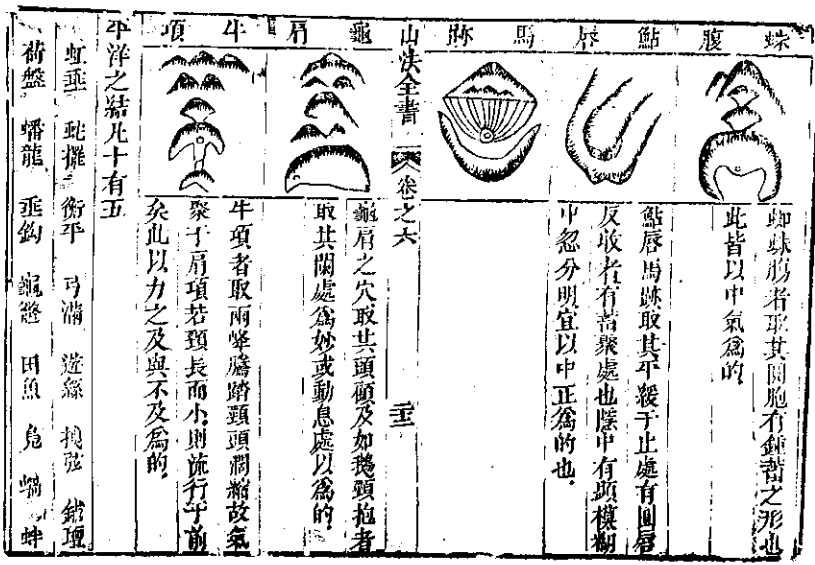 蛛腹
蜘蛛腸者取其圓胞有鍾蓄之形也
此皆以中氣爲的
鮎唇
馬跡
鮎唇馬跡取其平緩于止處有圓唇
反收者有蓄聚處也陰中有顯模糊
中忽分明宜以中正爲的也
山法全書
卷之六
龜肩
龜肩之穴取其頭顧及如鵝頸抱者
取其闊處爲妙或動息處以爲的
牛項
牛項者取兩峰膽踏頸頭濶縮故氣
聚于肩項若頸長而小則流行于前
矣此以力之及與不及爲的
平洋之結凡十有五
虹垂 蛇擺 衡平 弓滿 遊絲
荷盤 蟠龍 垂鈎 田魚 蚌